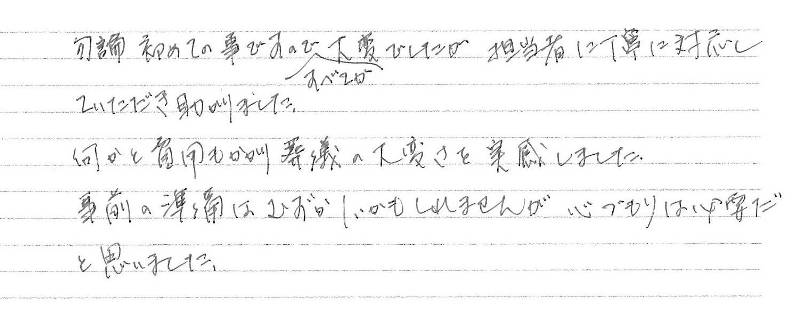 勿論 初めての事ですので すべてが 大変でしたが 担当者に丁寧に対応し
ていただき助かりました。
何かと費用もかかり葬儀の大変さを実感しました。
事前の準備はむずかしいかもしれませんが 心づもりは必要だ
と思いました。